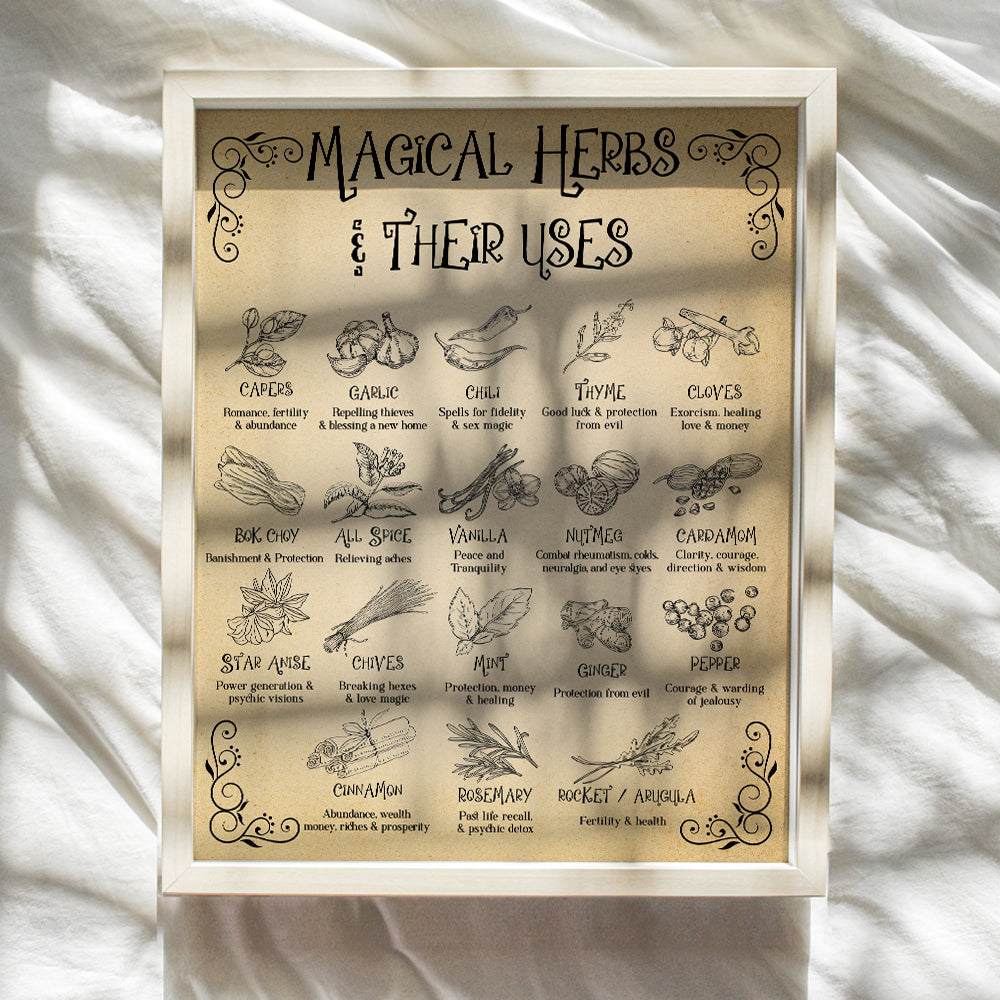 MAGICAL HERBS
& THEIR USES
CAPERS
Romance, fertility
& abundance
GARLIC
Repelling thieves
& blessing a new home
CHILI
Spells for fidelity
& sex magic
THYME
Good luck & protection
from evil
CLOVES
Exorcism, healing
love & money
BOK CHOY
Banishment & Protection
ALL SPICE
Relieving aches
VANILLA
Peace and
Tranquility
NUTMEG
Combat rheumatism, colds,
neuralgia, and eye styes
CARDAMOM
Clarity, courage,
direction & wisdom
STAR ANISE
Power generation &
psychic visions
CHIVES
Breaking hexes
& love magic
MINT
Protection, money
& healing
GINGER
Protection from evil
PEPPER
Courage & warding
of jealousy
CINNAMON
Abundance, wealth
money, riches & prosperity
ROSEMARY
Past life recall,
& psychic detox
ROCKET / ARUGULA
Fertility & health